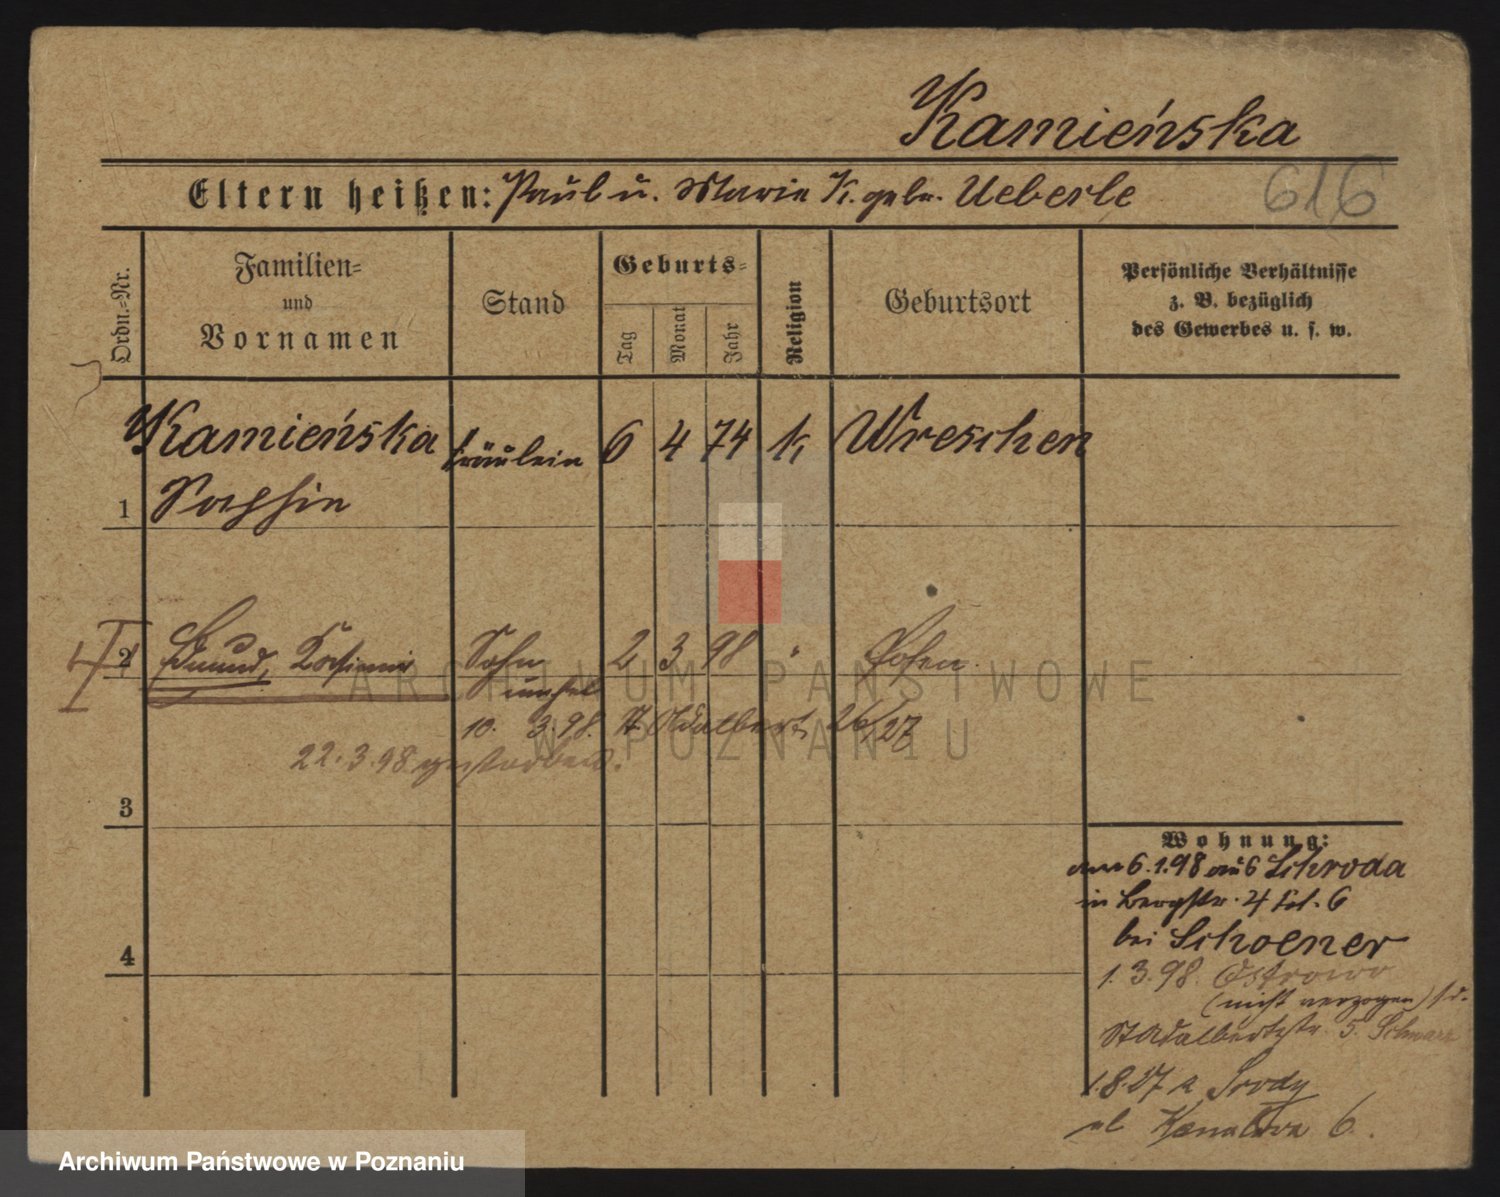 Kamieńska
Eltern heißen: Paul u. Marie K. gebr. Ueberle
616
Ordn.-Nr.
Familien-
und
Vornamen
Stand
Geburts-
Tag
Monat
Jahr
Religion
Geburtsort
Persönliche Verhältnisse
z. B. bezüglich
des Gewerbes u. s. w.
Kamieńska fräulein 6 4 74 k. Wreschen
1 Sophie
2 Edmund, Sohn 2 3 98 " Posen
unehel
10. 3. 98. St. Adalbert 26/27
22. 3. 98 gestorben.
3
4
Wohnung:
am 6.1.98 aus Schroda
in Bergstr. 4 bei
Schoener
1. 3. 98. Ostrowo
(nicht verzogen)
St Adalbertstr. 5. Schwarz
1.8.27 z Środy
ul Kanałowa 6.
ARCHIWUM PAŃSTWOWE
W POZNANIU
Archiwum Państwowe w Poznaniu